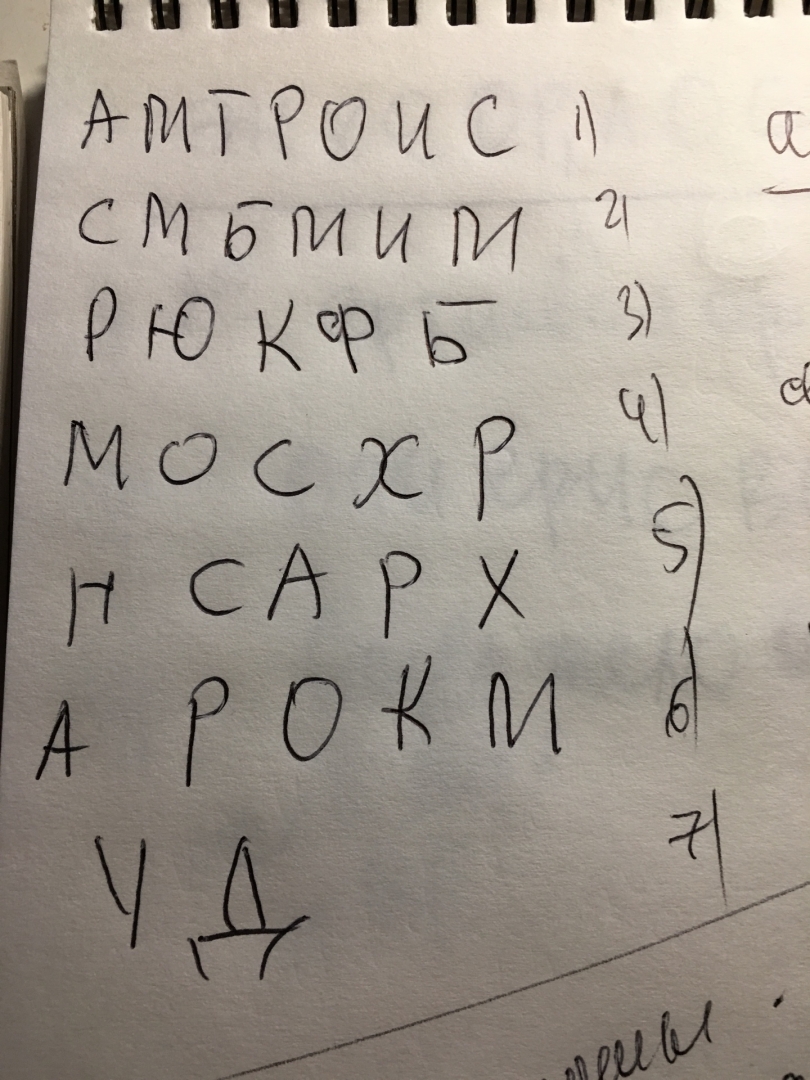 А М Т Р О И С 1)
С М Б М И М 2)
Р Ю К Ф Б 3)
М О С Х Р 4)
Н С А Р Х 5)
А Р О К М 6)
У Д 7)